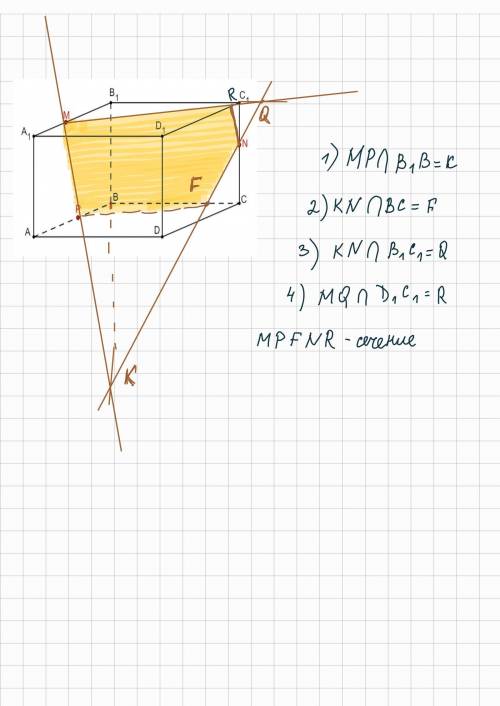 B₁
R C₁
M
Q
A₁
D₁
N
F
P
B
C
A
D
K
1) MP ∩ B₁B = K
2) KN ∩ BC = F
3) KN ∩ B₁C₁ = Q
4) MQ ∩ D₁C₁ = R
MPFNR - сечение